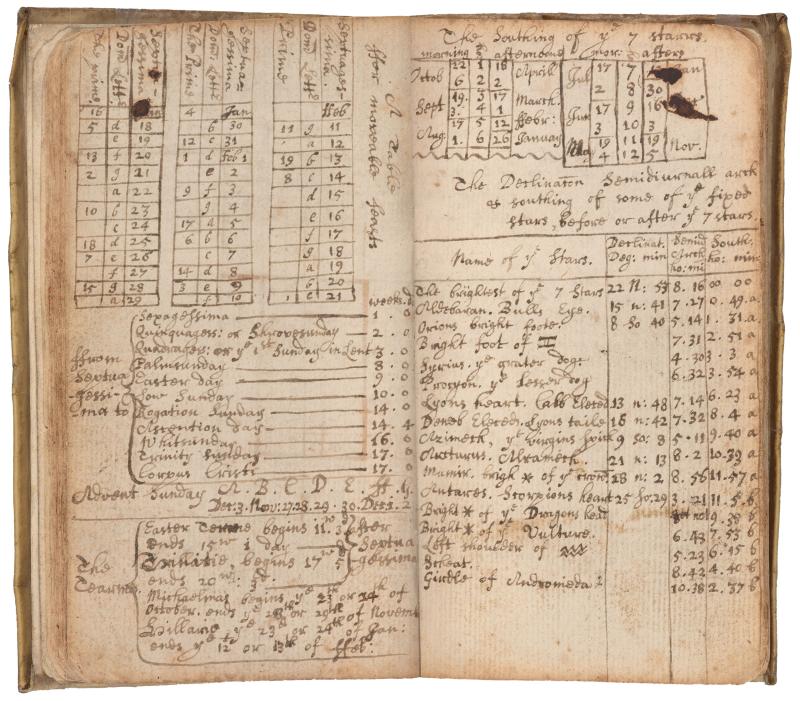 A Table
ffor moveable feasts
The prime Dom: Lettr Septuagessima
The Prime Dom: Lettr Septuagessima
Prime Dom: Lettr Septuagessima
16 Jan 4 Jan ffeb
5 d 18 b 30 11 g 11
e 19 12 c 31 a 12
13 f 20 1 d feb 1 19 b 13
2 g 21 e 2 8 c 14
a 22 9 f 3 d 15
10 b 23 g 4 e 16
c 24 17 a 5 f 17
18 d 25 6 b 6 g 18
7 e 26 c 7 a 19
f 27 14 d 8 b 20
15 g 28 3 e 9 c 21
a 29 f 10
weeks d
ffrom Septuagessima to
Sexagessima 1 . 0
Quinquages: or Shrovesunday 2 . 0
Quadrages: or yᵉ 1ˢᵗ Sunday in Lent 3 . 0
Palmsunday 8 . 0
Easter day 9 . 0
Low Sunday 10 . 0
Rogation Sunday 14 . 0
Ascention day 14 . 4
Whitsunday 16 . 0
Trinity Sunday 17 . 0
Corpus Cristi 17 .
Advent Sunday A . B . C . D . E . ff . G
Dec: 3 . Nov: 27. 28. 29 . 30. Dec 1 . 2
The Tearmes
Easter Terme begins 11 . 3
ends 15 w 1 day
Trinitie, begins 17 w 5
ends 20 w: 3
After Septuagessima
Michaelmas begins yᵉ 23 or 24ᵗʰ of
October. ends yᵉ 28ᵗʰ or 29ᵗʰ of Novem
Hillarie yᵉ 23ᵈ or 24ᵗʰ of Jan:
ends yᵉ 12 or 13ᵗʰ of ffeb:
The Southing of yᵉ 7 starrs.
morning afternoone mor: aftern
Octob 22 1 16 April Jul 17 7 Jan
6 2 2 2 8 30
Sept 19 3 17 March Jun 17 9 16
3 4 1 ffebr: 3 10 3
Aug 17 5 12 January May 19 11 19 Nov.
1 6 26 4 12 5
The Declination Semidiurnall arck
& southing of some of yᵉ fixed
stars, before or after yᵉ 7 stars.
Name of yᵉ Stars. Declinat. Deg: min Semid Arck ho: mi South. ho: min
The brightest of yᵉ 7 Stars 22 n: 53 8. 16 00 00
Aldebaran. Bulls Eye. 15 n: 41 7. 27 0. 49 a
Orions bright foote. 8 So 40 5. 14 1. 31 a
Bright foot of ♊ 7. 31 2. 51 a
Syrius. yᵉ grater dog. 4. 30 3. 3 a
Procyon. yᵉ lesser dog 6. 32 3. 54 a
Lyons heart. Calb Eleced 13 n: 48 7. 14 6. 23 a
Deneb Eleced. Lyons taile 16 n: 42 7. 32 8. 4 a
Azimeth, yᵉ virgins spike 9 So: 8 5. 11 9. 40 a
Arcturus. Alrameth. 21 n: 13 8. 2 10. 39 a
Munir. brigh * of yᵉ crown 28 n: 2 8. 56 11. 57 a
Antares. Scorpions heart 25 So. 29 3. 21 11. 5 b
Bright * of yᵉ Dragons head not 9. 58 b
Bright * of yᵉ Vulture. 6. 48 7. 53 b
Left shoulder of ♒ 5. 23 6. 15 b
Scheat. 8. 42 4. 40 b
Girdle of Andromeda 10. 38 2. 37 b